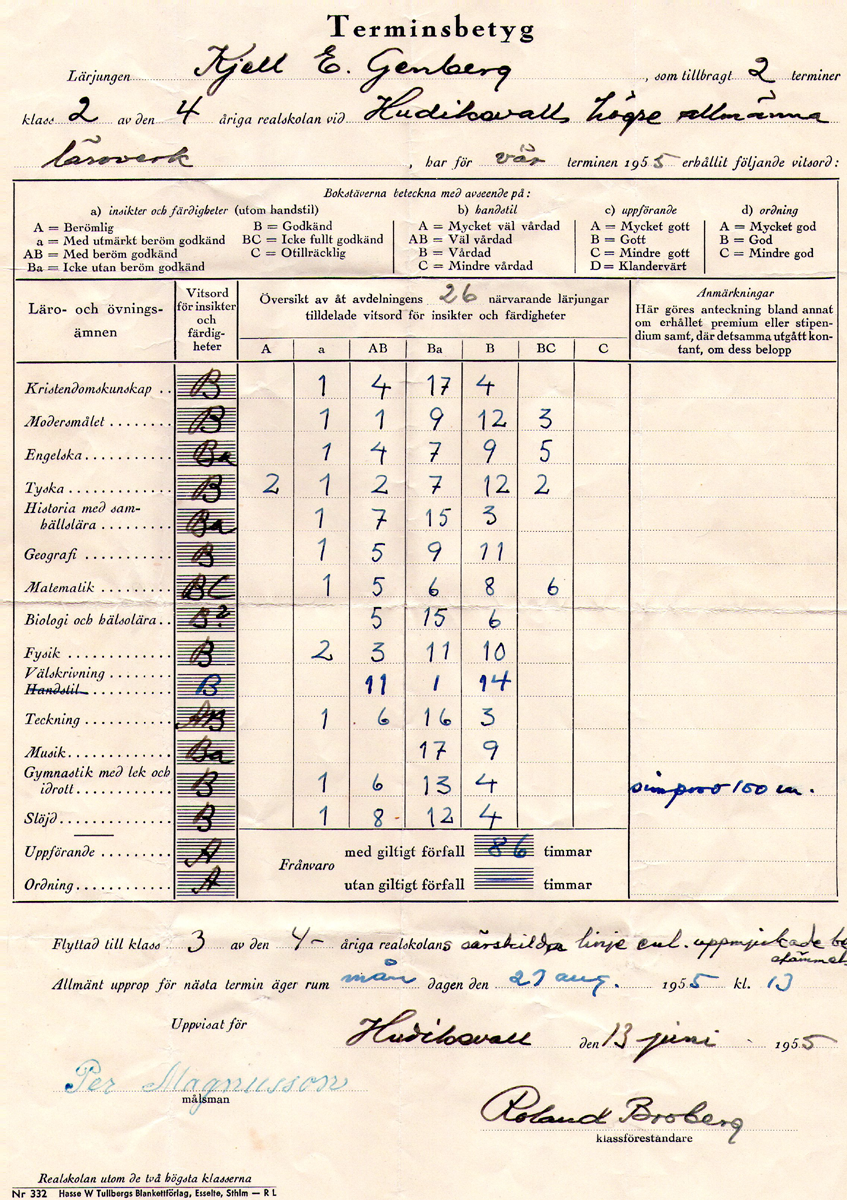 Terminsbetyg
Lärjungen Kjell E. Genberg, som tillbragt 2 terminer
klass 2 av den 4 åriga realskolan vid Hudiksvalls högre allmänna
läroverk, har för vår terminen 1955 erhållit följande vitsord:
Bokstäverna beteckna med avseende på:
a) insikter och färdigheter (utom handstil) b) handstil c) uppförande d) ordning
A = Berömlig B = Godkänd A = Mycket väl vårdad A = Mycket gott A = Mycket god
a = Med utmärkt beröm godkänd BC = Icke fullt godkänd AB = Väl vårdad B = Gott B = God
AB = Med beröm godkänd C = Otillräcklig B = Vårdad C = Mindre gott C = Mindre god
Ba = Icke utan beröm godkänd C = Mindre vårdad D = Klandervärt
Läro- och övnings-
ämnen
Vitsord
för insikter
och
färdig-
heter
Översikt av åt avdelningens 26 närvarande lärjungar
tilldelade vitsord för insikter och färdigheter
A a AB Ba B BC C
Anmärkningar
Här göres anteckning bland annat
om erhållet premium eller stipen-
dium samt, där detsamma utgått kon-
tant, om dess belopp
Kristendomskunskap .. B 1 4 17 4
Modersmålet ........ B 1 1 9 12 3
Engelska ........... Ba 1 4 7 9 5
Tyska .............. B 2 1 2 7 12 2
Historia med sam-
hällslära ......... Ba 1 7 15 3
Geografi ........... B 1 5 9 11
Matematik .......... BC 1 5 6 8 6
Biologi och hälsolära .. B? 5 15 6
Fysik .............. B 2 3 11 10
Välskrivning ........
Handstil ........... B 11 1 14
Teckning ........... AB 1 6 16 3
Musik .............. Ba 17 9
Gymnastik med lek och
idrott ............ B 1 6 13 4 simprov 100 m.
Slöjd .............. B 1 8 12 4
Uppförande ......... A
Ordning ............ A
Frånvaro
med giltigt förfall 86 timmar
utan giltigt förfall timmar
Flyttad till klass 3 av den 4- åriga realskolans särskilda linje enl. uppmjukade
Allmänt upprop för nästa termin äger rum mån dagen den 29 aug. 1955 kl. 13
Uppvisat för Hudiksvall den 13 juni 1955
Per Magnusson
målsman
Roland Broberg
klassföreståndare
Realskolan utom de två högsta klasserna
Nr 332 Hasse W Tullbergs Blankettförlag, Esselte, Sthlm — R L